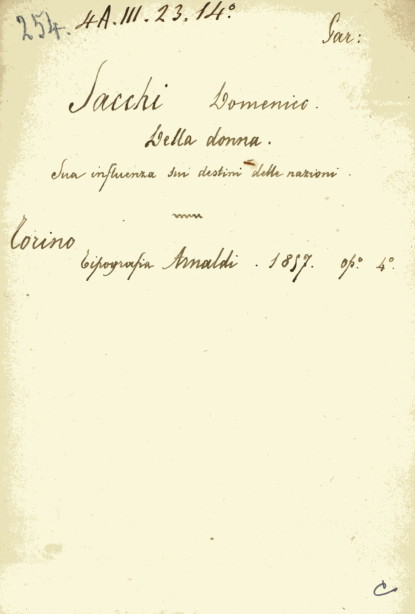 254. 4A.III.23.14°
Gar:
Sacchi Domenico.
Della donna.
Sua influenza sui destini delle nazioni.
Torino
Tipografia Arnaldi. 1857. op° 4°.
C